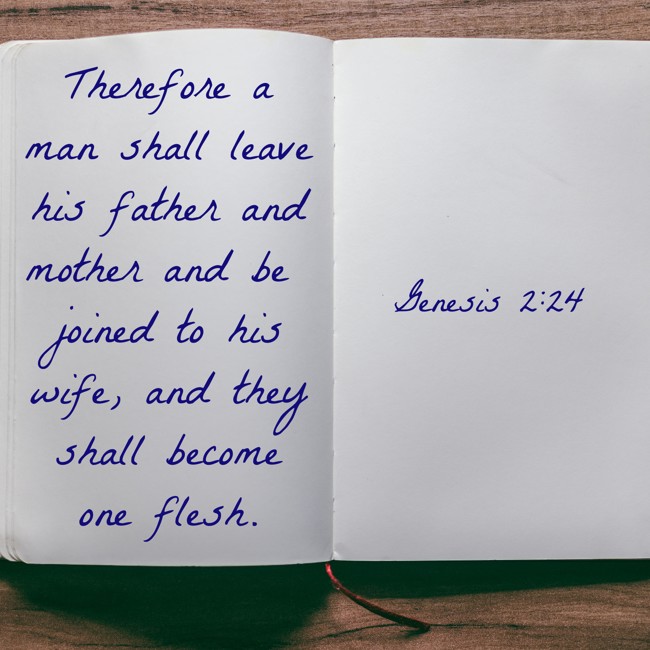 Therefore a
man shall leave
his father and
mother and be
joined to his
wife, and they
shall become
one flesh.
Genesis 2:24